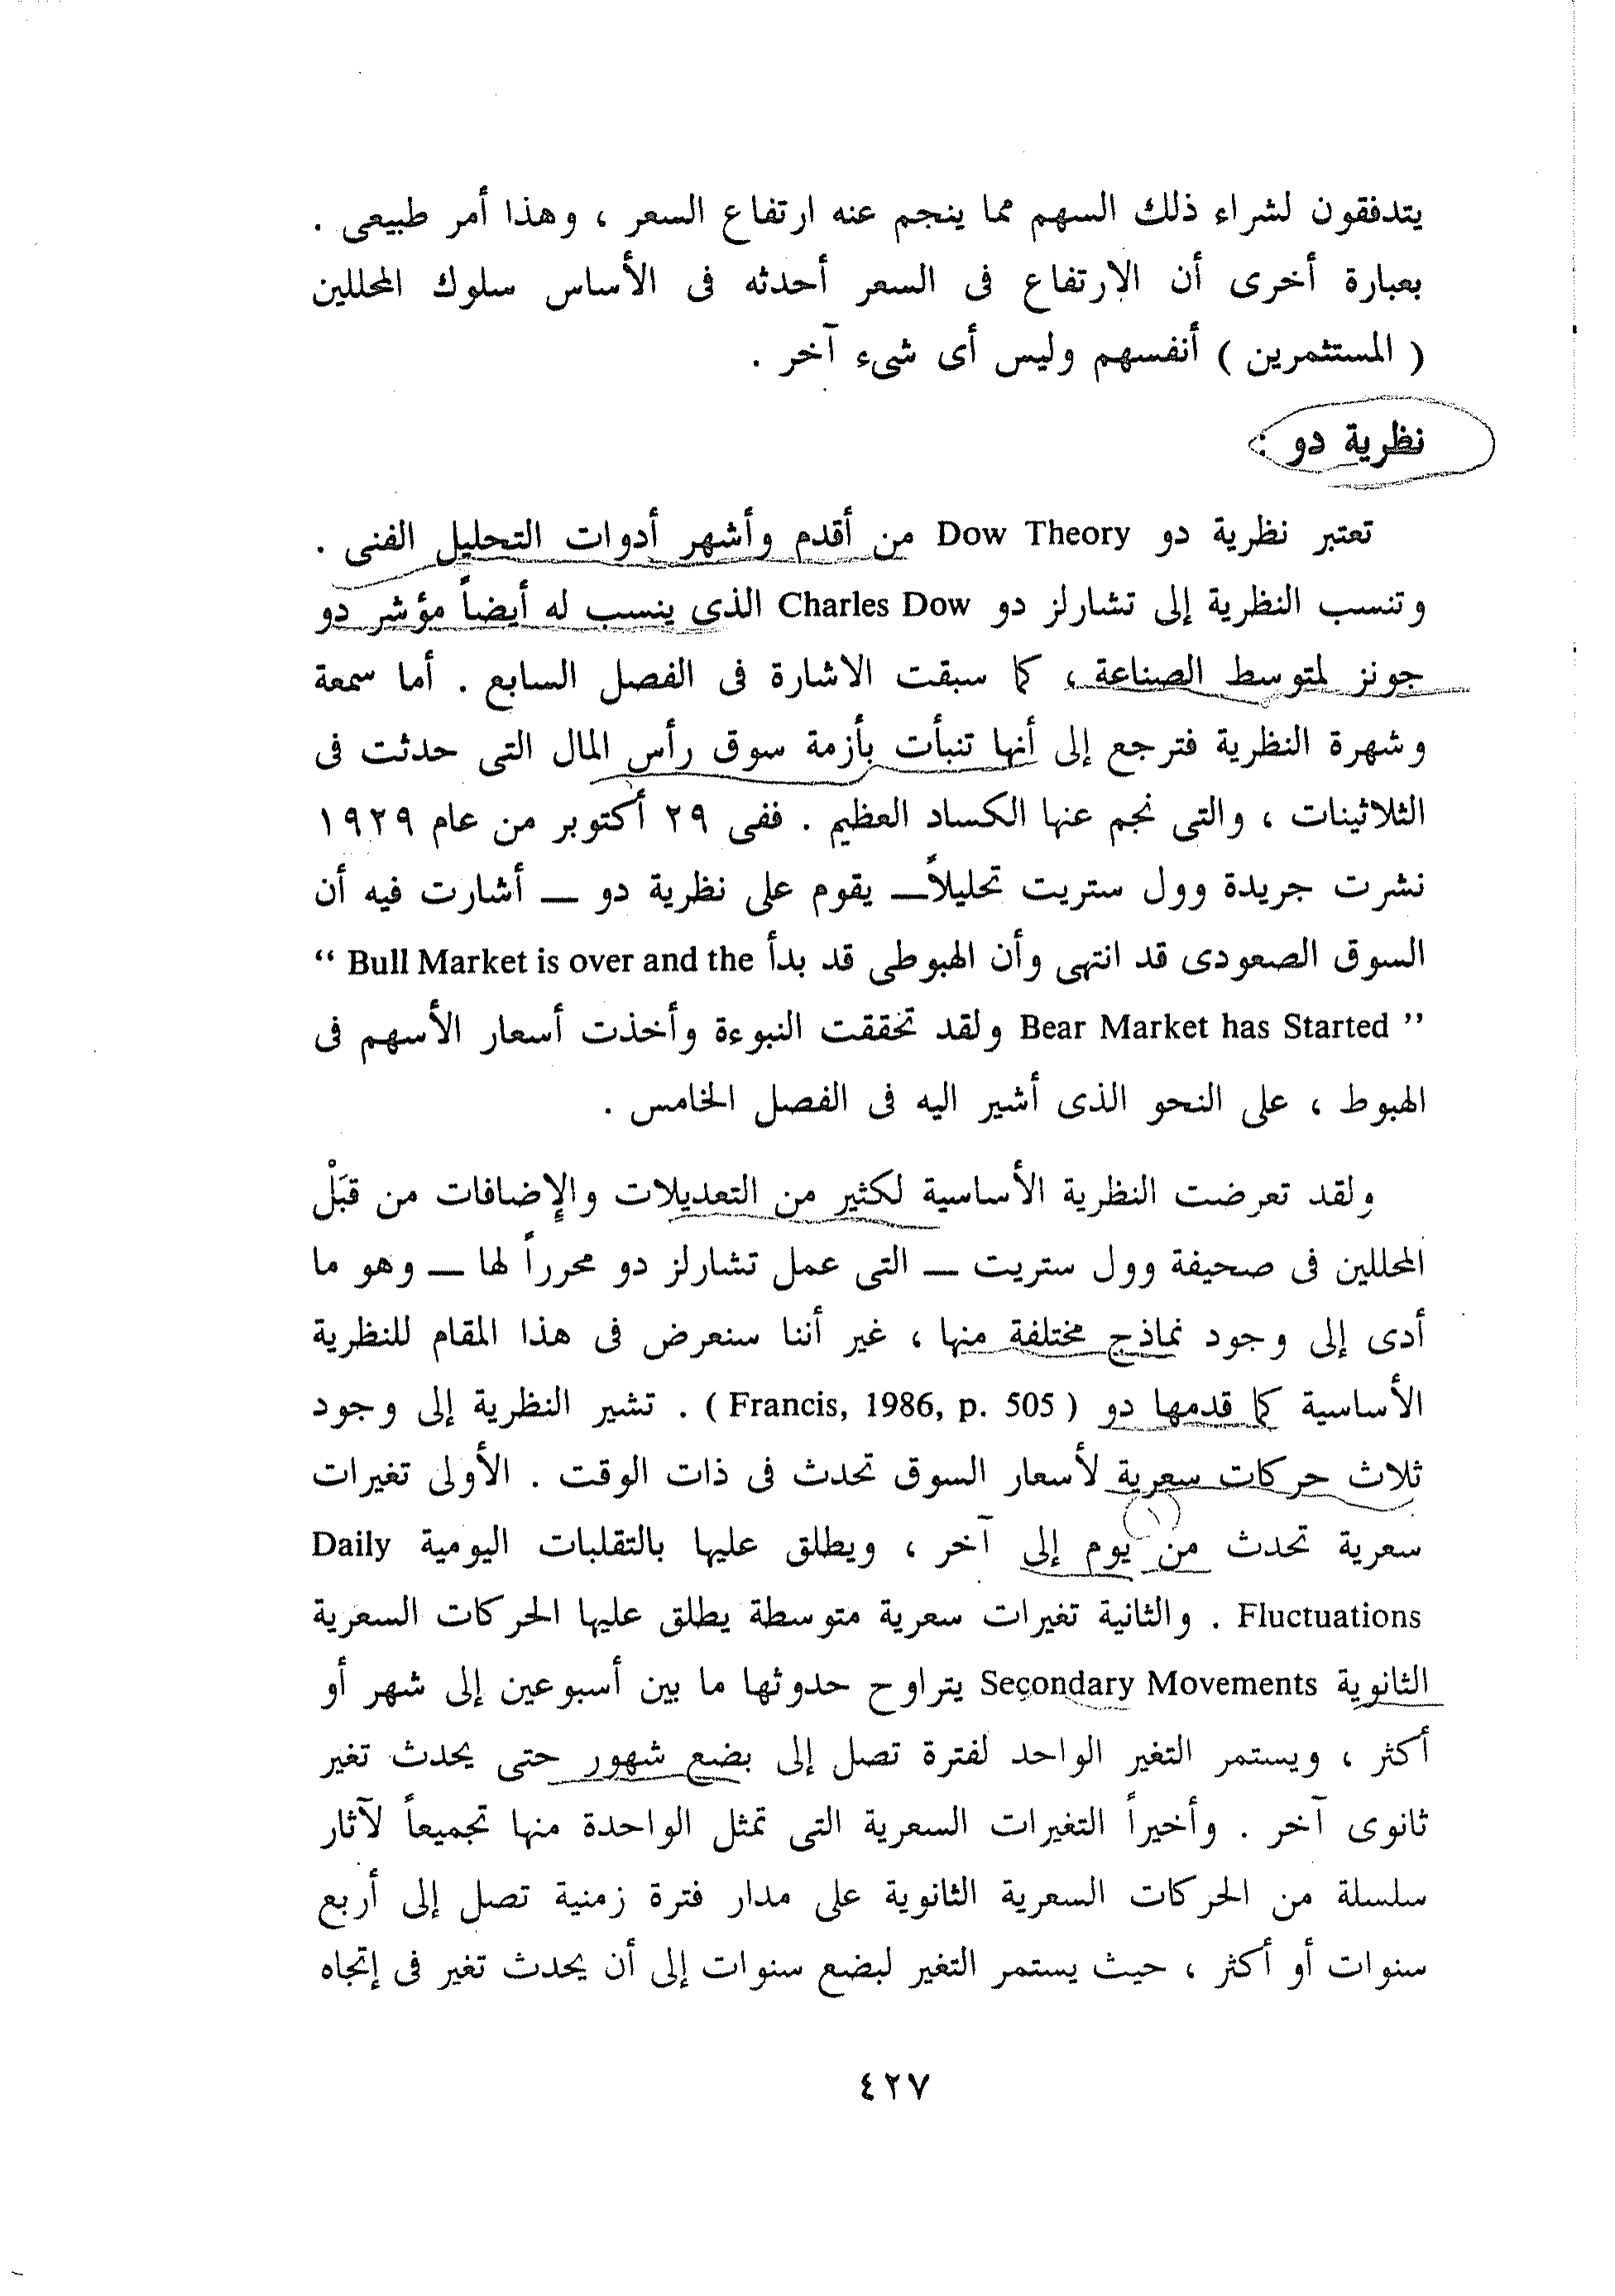 يتدفقون لشراء ذلك السهم مما ينجم عنه ارتفاع السعر ، وهذا أمر طبيعى .
بعبارة أخرى أن الارتفاع فى السعر أحدثه فى الأساس سلوك المحللين
( المستثمرين ) أنفسهم وليس أى شىء آخر .
نظرية دو :
تعتبر نظرية دو Dow Theory من أقدم وأشهر أدوات التحليل الفنى .
وتنسب النظرية إلى تشارلز دو Charles Dow الذى ينسب له أيضاً مؤشر دو
جونز لمتوسط الصناعة ، كما سبقت الاشارة فى الفصل السابع . أما سمعة
وشهرة النظرية فترجع إلى أنها تنبأت بأزمة سوق رأس المال التى حدثت فى
الثلاثينات ، والتى نجم عنها الكساد العظيم . ففى ٢٩ أكتوبر من عام ١٩٢٩
نشرت جريدة وول ستريت تحليلاً ــ يقوم على نظرية دو ــ أشارت فيه أن
السوق الصعودى قد انتهى وأن الهبوطى قد بدأ “ Bull Market is over and the
Bear Market has Started ” ولقد تحققت النبوءة وأخذت أسعار الأسهم فى
الهبوط ، على النحو الذى أشير اليه فى الفصل الخامس .
ولقد تعرضت النظرية الأساسية لكثير من التعديلات والإضافات من قبَلْ
المحللين فى صحيفة وول ستريت ــ التى عمل تشارلز دو محرراً لها ــ وهو ما
أدى إلى وجود نماذج مختلفة منها ، غير أننا سنعرض فى هذا المقام للنظرية
الأساسية كما قدمها دو ( Francis, 1986, p. 505 ) . تشير النظرية إلى وجود
ثلاث حركات سعرية لأسعار السوق تحدث فى ذات الوقت . الأولى تغيرات
(١)
سعرية تحدث من يوم إلى آخر ، ويطلق عليها بالتقلبات اليومية Daily
Fluctuations . والثانية تغيرات سعرية متوسطة يطلق عليها الحركات السعرية
الثانوية Secondary Movements يتراوح حدوثها ما بين أسبوعين إلى شهر أو
أكثر ، ويستمر التغير الواحد لفترة تصل إلى بضع شهور حتى يحدث تغير
ثانوى آخر . وأخيراً التغيرات السعرية التى تمثل الواحدة منها تجميعاً لآثار
سلسلة من الحركات السعرية الثانوية على مدار فترة زمنية تصل إلى أربع
سنوات أو أكثر ، حيث يستمر التغير لبضع سنوات إلى أن يحدث تغير فى إتجاه
٤٢٧